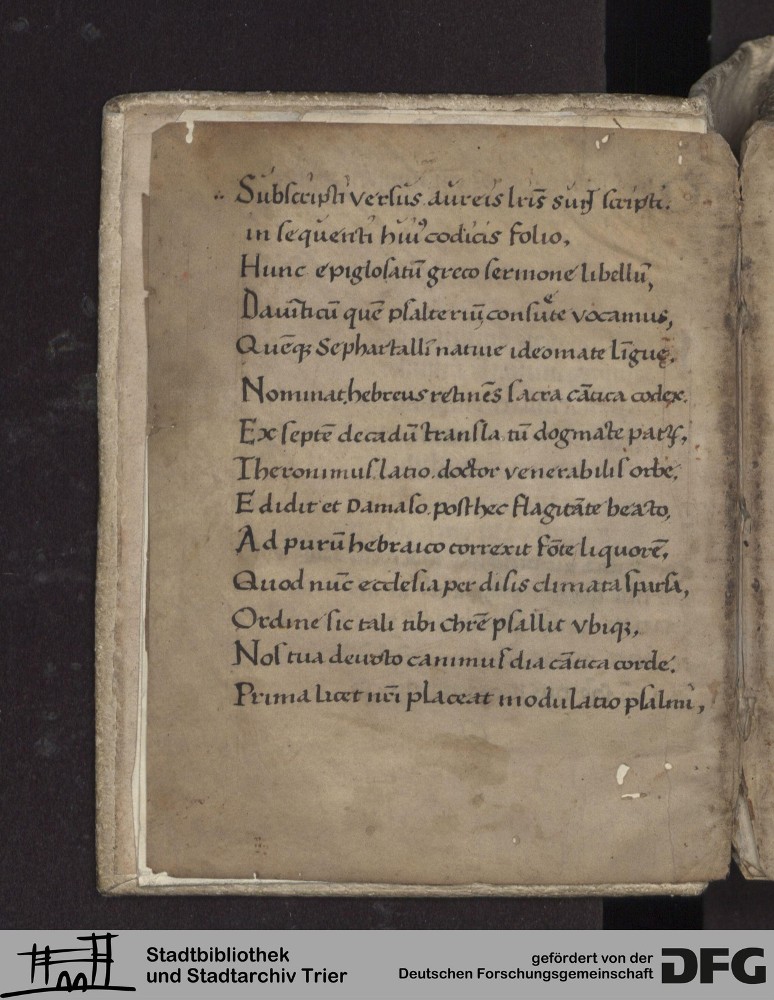 ∴ Subscripti versus aureis lr̄is sunt scripti.
in sequenti hui⁹ codicis folio,
Hunc epiglosatū greco sermone libellū,
Dauiticū quē psalteriū consuete vocamus,
Quēq; Sephartallī natiue ideomate līguę.
Nominat hebreus retinēs sacra cātica codex.
Ex septē decadū translatū dogmate patrū,
Iheronimus latio doctor venerabilis orbe.
Edidit et Damaso posthec flagitāte beato,
Ad purū hebraico correxit fōte liquorē,
Quod nūc ecclesia per disis climata sparsa,
Ordine sic tali tibi christē psallit vbiq;,
Nos tua deuoto canimus dia cātica corde.
Prima licet nr̄i placeat modulatio psalmi,
Stadtbibliothek
und Stadtarchiv Trier
gefördert von der
Deutschen Forschungsgemeinschaft
DFG